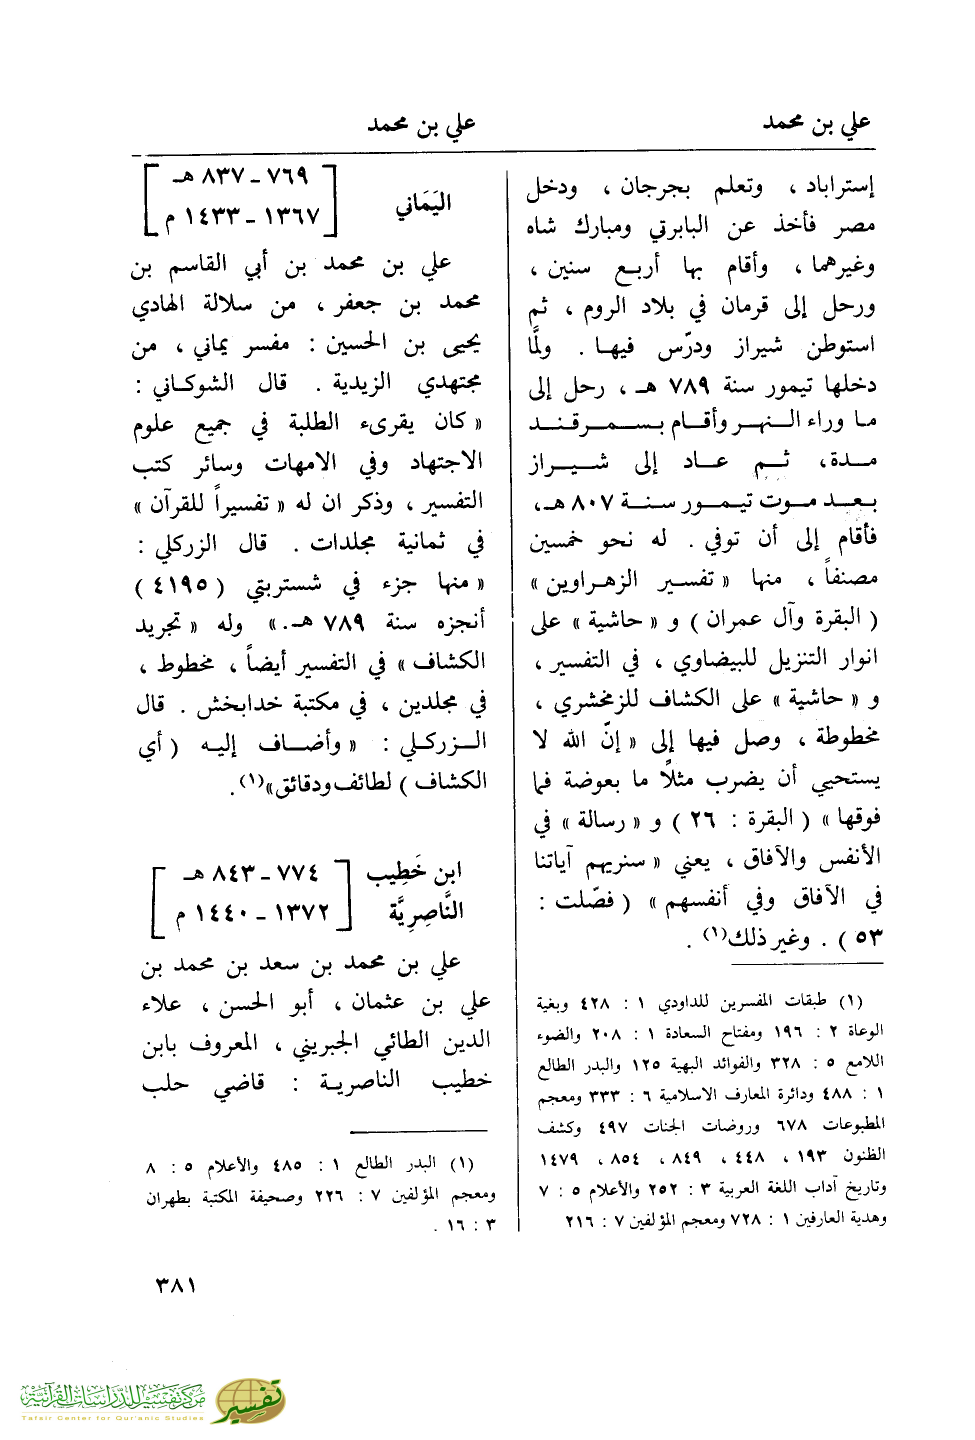 علي بن محمد
علي بن محمد
إستراباد ، وتعلم بجرجان ، ودخل
مصر فأخذ عن البابرتي ومبارك شاه
وغيرهما ، وأقام بها أربع سنين ،
ورحل إلى قرمان في بلاد الروم ، ثم
استوطن شيراز ودرّس فيها . ولمّا
دخلها تيمور سنة ٧٨٩ هـ ، رحل إلى
ما وراء النهر وأقام بسمرقند
مدة، ثم عاد إلى شيراز
بعد موت تيمور سنة ٨٠٧ هـ،
فأقام إلى أن توفي . له نحو خمسين
مصنفاً ، منها « تفسير الزهراوين »
( البقرة وآل عمران ) و « حاشية » على
انوار التنزيل للبيضاوي ، في التفسير ،
و « حاشية » على الكشاف للزمخشري ،
مخطوطة ، وصل فيها إلى « إنّ الله لا
يستحيي أن يضرب مثلاً ما بعوضة فما
فوقها » ( البقرة : ٢٦ ) و « رسالة » في
الأنفس والآفاق ، يعني « سنريهم آياتنا
في الآفاق وفي أنفسهم » ( فصّلت :
٥٣ ) . وغير ذلك(١) .
(١) طبقات المفسرين للداودي ١ : ٤٢٨ وبغية
الوعاة ٢ : ١٩٦ ومفتاح السعادة ١ : ٢٠٨ والضوء
اللامع ٥ : ٣٢٨ والفوائد البهية ١٢٥ والبدر الطالع
١ : ٤٨٨ ودائرة المعارف الاسلامية ٦ : ٣٣٣ ومعجم
المطبوعات ٦٧٨ وروضات الجنات ٤٩٧ وكشف
الظنون ١٩٣ ، ٤٤٨ ، ٨٤٩ ، ٨٥٤ ، ١٤٧٩
وتاريخ آداب اللغة العربية ٣ : ٢٥٢ والأعلام ٥ : ٧
وهدية العارفين ١ : ٧٢٨ ومعجم المؤلفين ٧ : ٢١٦
اليَمَاني
[ ٧٦٩ - ٨٣٧ هـ
١٣٦٧ - ١٤٣٣ م ]
علي بن محمد بن أبي القاسم بن
محمد بن جعفر ، من سلالة الهادي
يحيى بن الحسين : مفسر يماني ، من
مجتهدي الزيدية . قال الشوكاني :
« كان يقرىء الطلبة في جميع علوم
الاجتهاد وفي الامهات وسائر كتب
التفسير ، وذكر ان له « تفسيراً للقرآن »
في ثمانية مجلدات . قال الزركلي :
« منها جزء في شستربتي ( ٤١٩٥ )
أنجزه سنة ٧٨٩ هـ.» وله « تجريد
الكشاف » في التفسير أيضاً ، مخطوط ،
في مجلدين ، في مكتبة خدابخش . قال
الزركلي : « وأضاف إليه ( أي
الكشاف ) لطائف ودقائق»(١) .
ابن خَطِيب
النَّاصِرِيَّة
[ ٧٧٤ - ٨٤٣ هـ
١٣٧٢ - ١٤٤٠ م ]
علي بن محمد بن سعد بن محمد بن
علي بن عثمان ، أبو الحسن ، علاء
الدين الطائي الجبريني ، المعروف بابن
خطيب الناصرية : قاضي حلب
(١) البدر الطالع ١ : ٤٨٥ والأعلام ٥ : ٨
ومعجم المؤلفين ٧ : ٢٢٦ وصحيفة المكتبة بطهران
٣ : ١٦ .
٣٨١
مركز تفسير للدراسات القرآنية
Tafsir Center for Qur'anic Studies
تفسير